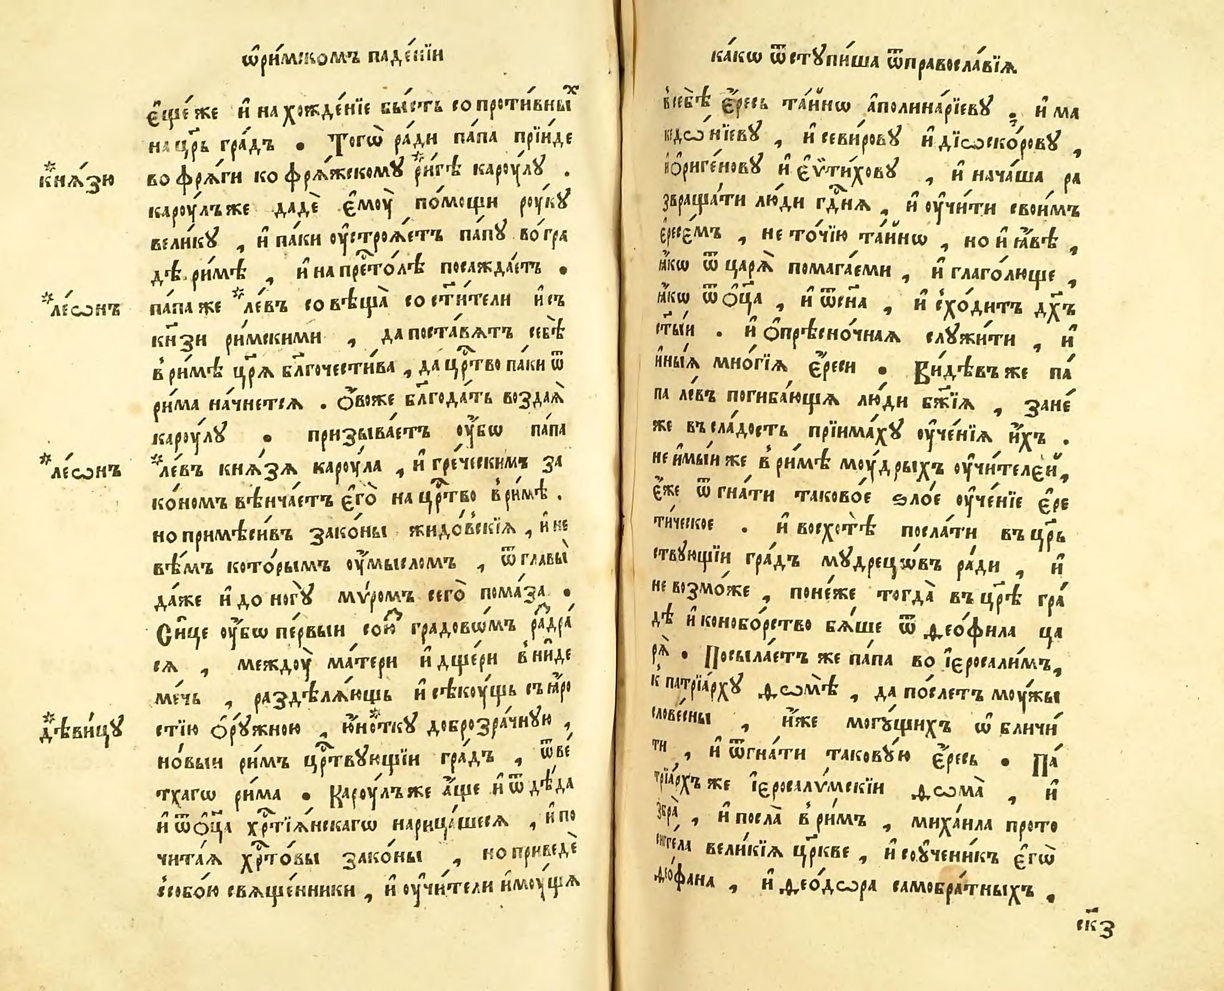 ѽри́мскомъ паде́нїи
є҆ще́ же и҆ нахожде́нїе бы́сть сопроти́вныⷯ
на цр҃ь гра́дъ . Тогѡ̀ ра́ди па́па прїи́де
*кн҃ѧзю
во фрѧ́ги ко фрѧ́жскому *ри́гѣ кароу́лу .
кароу́лъже дадѐ є҆моу̀ по́мощи роу́кꙋ
вели́кꙋ , и҆ па́ки оу҆строѧ́етъ па́пꙋ во гра
дѣ ри́мѣ , и҆ на прⷭ҇то́лѣ посажда́етъ .
*ле́ѡнъ
па́па же *ле́въ совѣща̀ со ст҃и́тели и҆ съ
кн҃зи ри́мскими , да поста́вѧтъ себѣ̀
в ри́мѣ цр҃ѧ̀ бл҃гочести́ва , да цр҇ⷭтво паки ѿ
ри́ма на́чнетсѧ . О҆́воже бл҃года́ть воздаѧ̀
кароу́лꙋ . призыва́етъ оу҆́бѡ па́па
*ле́ѡнъ
*ле́въ кнѧ́зѧ кароу́ла , и҆ гре́ческимъ за
ко́номъ вѣнча́етъ є҆го̀ на цр҇ⷭтво в ри́мѣ .
но примѣси́въ зако́ны жидо́вскїѧ , и҆ не
вѣ́мъ кото́рымъ оу҆́мысломъ , ѿ главы̀
да́же и҆ до ногꙋ̀ мѵ́ромъ сего̀ пома́за .
Си́це оу҆́бѡ пе́рвыи сою́ⷥ градовѡ́мъ раⷥдра́
сѧ , междоу̀ ма́тери и҆ дще́ри вни́де
ме́чь , раздѣлѧ́ющь и҆ сѣкоу́щь съ ꙗ҆́ро
*дѣви́цꙋ
стїю ѻ҆рꙋ́жною , ю҆́но*ткꙋ доброзра́чнꙋю ,
но́выи ри́мъ цр҇ⷭтвꙋющїи гра́дъ , ѿ ве́
тхагѡ ри́ма . Кароу́лъже а҆́ще и҆ ѿ дѣ́да
и҆ ѿ ѻ҆ц҃а̀ хрⷭ҇тїѧ́нскагѡ нарица́шесѧ , и҆ по
чита́ѧ хрⷭ҇то́вы зако́ны , но приведѐ
с собо́ю свѧще́нники , и҆ оу҆чи́тели и҆моу́щѧ
ка́кѡ ѿстꙋпи́ша ѿправосла́вїѧ
в себѣ̀ є҆́ресь та́йнѡ а҆полина́рїевꙋ , и҆ ма
кедѡ́нїевꙋ , и҆ севи́ровꙋ и҆ дїѡско́ровꙋ ,
и҆ ѻ҆риге́новꙋ и҆ є҆ѵти́ховꙋ , и҆ нача́ша ра
звраща́ти лю́ди гдⷭ҇нѧ , и҆ оу҆чи́ти свои́мъ
є҆ресе́мъ , не то́чїю та́йнѡ , но и҆ ꙗ҆́вѣ ,
ꙗ҆́кѡ ѿ царѧ̀ помага́еми , и҆ глаго́люще ,
ꙗ҆́кѡ ѿ ѻ҆ц҃а , и҆ ѿ сн҃а , и҆ схо́дитъ дх҃ъ
ст҃ы́и . и҆ ѻ҆прѣсно́чная слꙋжи́ти , и҆
и҆ны́ѧ мно́гїѧ є҆́реси . Ви́дѣвъ же па́
па ле́въ погиба́ющѧ лю́ди бж҃їѧ , зане́
же въ сла́дость прїима́хꙋ оу҆че́нїѧ и҆́хъ .
не и҆мы́и же в ри́мѣ моу́дрыхъ оу҆чи́телєй ,
є҆́же ѿгна́ти таково́е ѕло́е оу҆че́нїе є҆ре
ти́ческое . и҆ восхотѣ̀ посла́ти въ цр҃ь
ствꙋющїи гра́дъ мꙋдрецѡ́въ ра́ди , и҆
не возмо́же , поне́же тогда̀ въ цр҃ѣ гра́
дѣ и҆коно­бо́рство бѧ́ше ѿ ѳео́фила ца
рѧ̀ . Посыла́етъ же па́па во і҆єросали́мъ ,
к патрїа́рхꙋ ѳѡмѣ̀ , да по́слетъ моу́жы
слове́сны , и҆́же мо́гꙋщихъ ѡ҆бличи́
ти , и҆ ѿгна́ти такову́ю є҆́ресь . Па
трїа́рхъ же і҆єросалѵ́мскїи ѳѡма̀ , и҆
збра̀ , и҆ посла̀ в ри́мъ , миха́ила прото
сигге́ла вели́кїѧ цр҃кве , и҆ соу҆ченикъ є҆гѡ̀
ѳео́фана , и҆ ѳео́дѡра самобра́тныхъ .
ск҃з